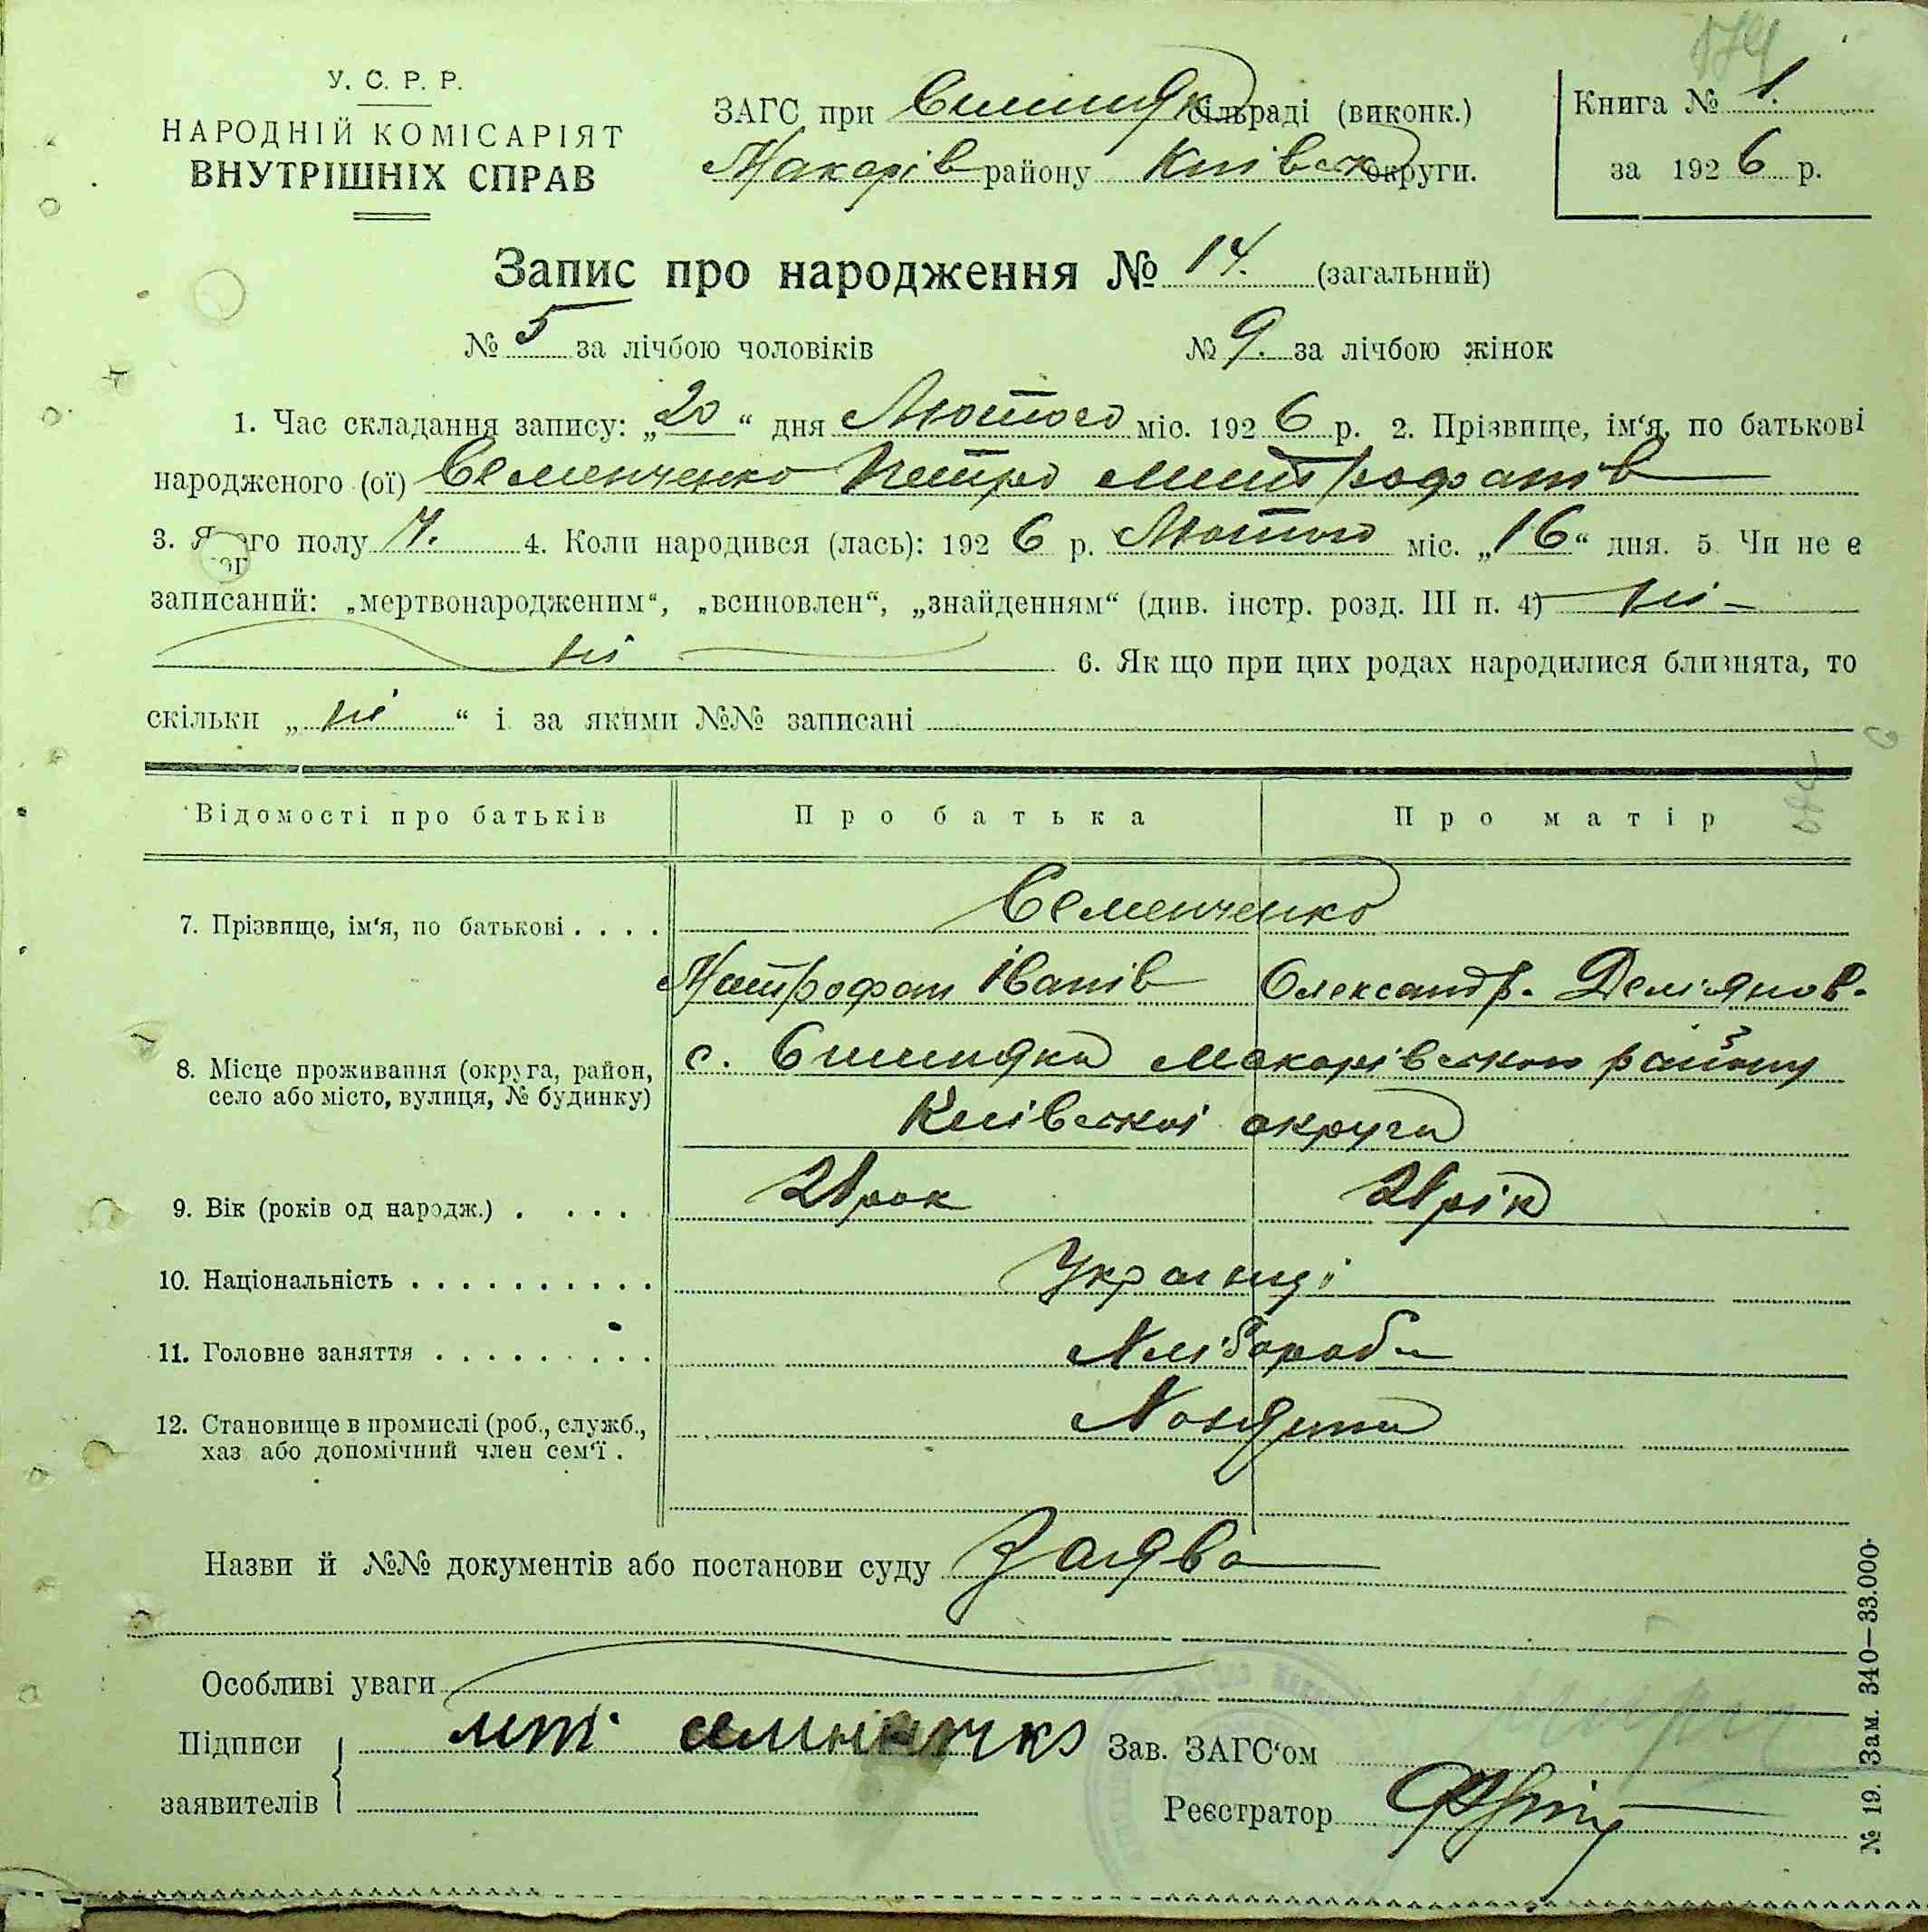 174
У. С. Р. Р.
НАРОДНІЙ КОМІСАРІЯТ
ВНУТРІШНІХ СПРАВ
ЗАГС при сільраді (виконк.)
Макарів району Київськ округи.
Книга № 1.
за 1926 р.
Запис про народження № 14. (загальний)
№ 5 за лічбою чоловіків № 9. за лічбою жінок
1. Час складання запису: „20“ дня Лютого міс. 1926 р. 2. Прізвище, ім‘я, по батькові
народженого (ої) Семенченко Петро Митрофанів
3. Якого полу Ч. 4. Коли народився (лась): 1926 р. Лютого міс. „16“ дня. 5. Чи не є
записаний: „мертвонародженим“, „всиновлен“, „знайденням“ (див. інстр. розд. III п. 4) ні
ні 6. Як що при цих родах народилися близнята, то
скільки „ні“ і за якими №№ записані
Відомості про батьків Про батька Про матір
7. Прізвище, ім‘я, по батькові . . . . Семенченко
Митрофан Іванів Олександр. Демʼянов.
8. Місце проживання (округа, район,
село або місто, вулиця, № будинку)
с. Макарівського району
Київської округи
9. Вік (років од народж.) . . . . 21 рок 21 рік
10. Національність . . . . . . . . . . Українці
11. Головне заняття . . . . . . . . . Хлібороби
12. Становище в промислі (роб., служб.,
хаз або допомічний член сем‘ї . Хозяїни
Назви й №№ документів або постанови суду Заява
Особливі уваги
Підписи
заявителів
Зав. ЗАГС‘ом
Реєстратор
№ 19. Зам. 340—33.000.